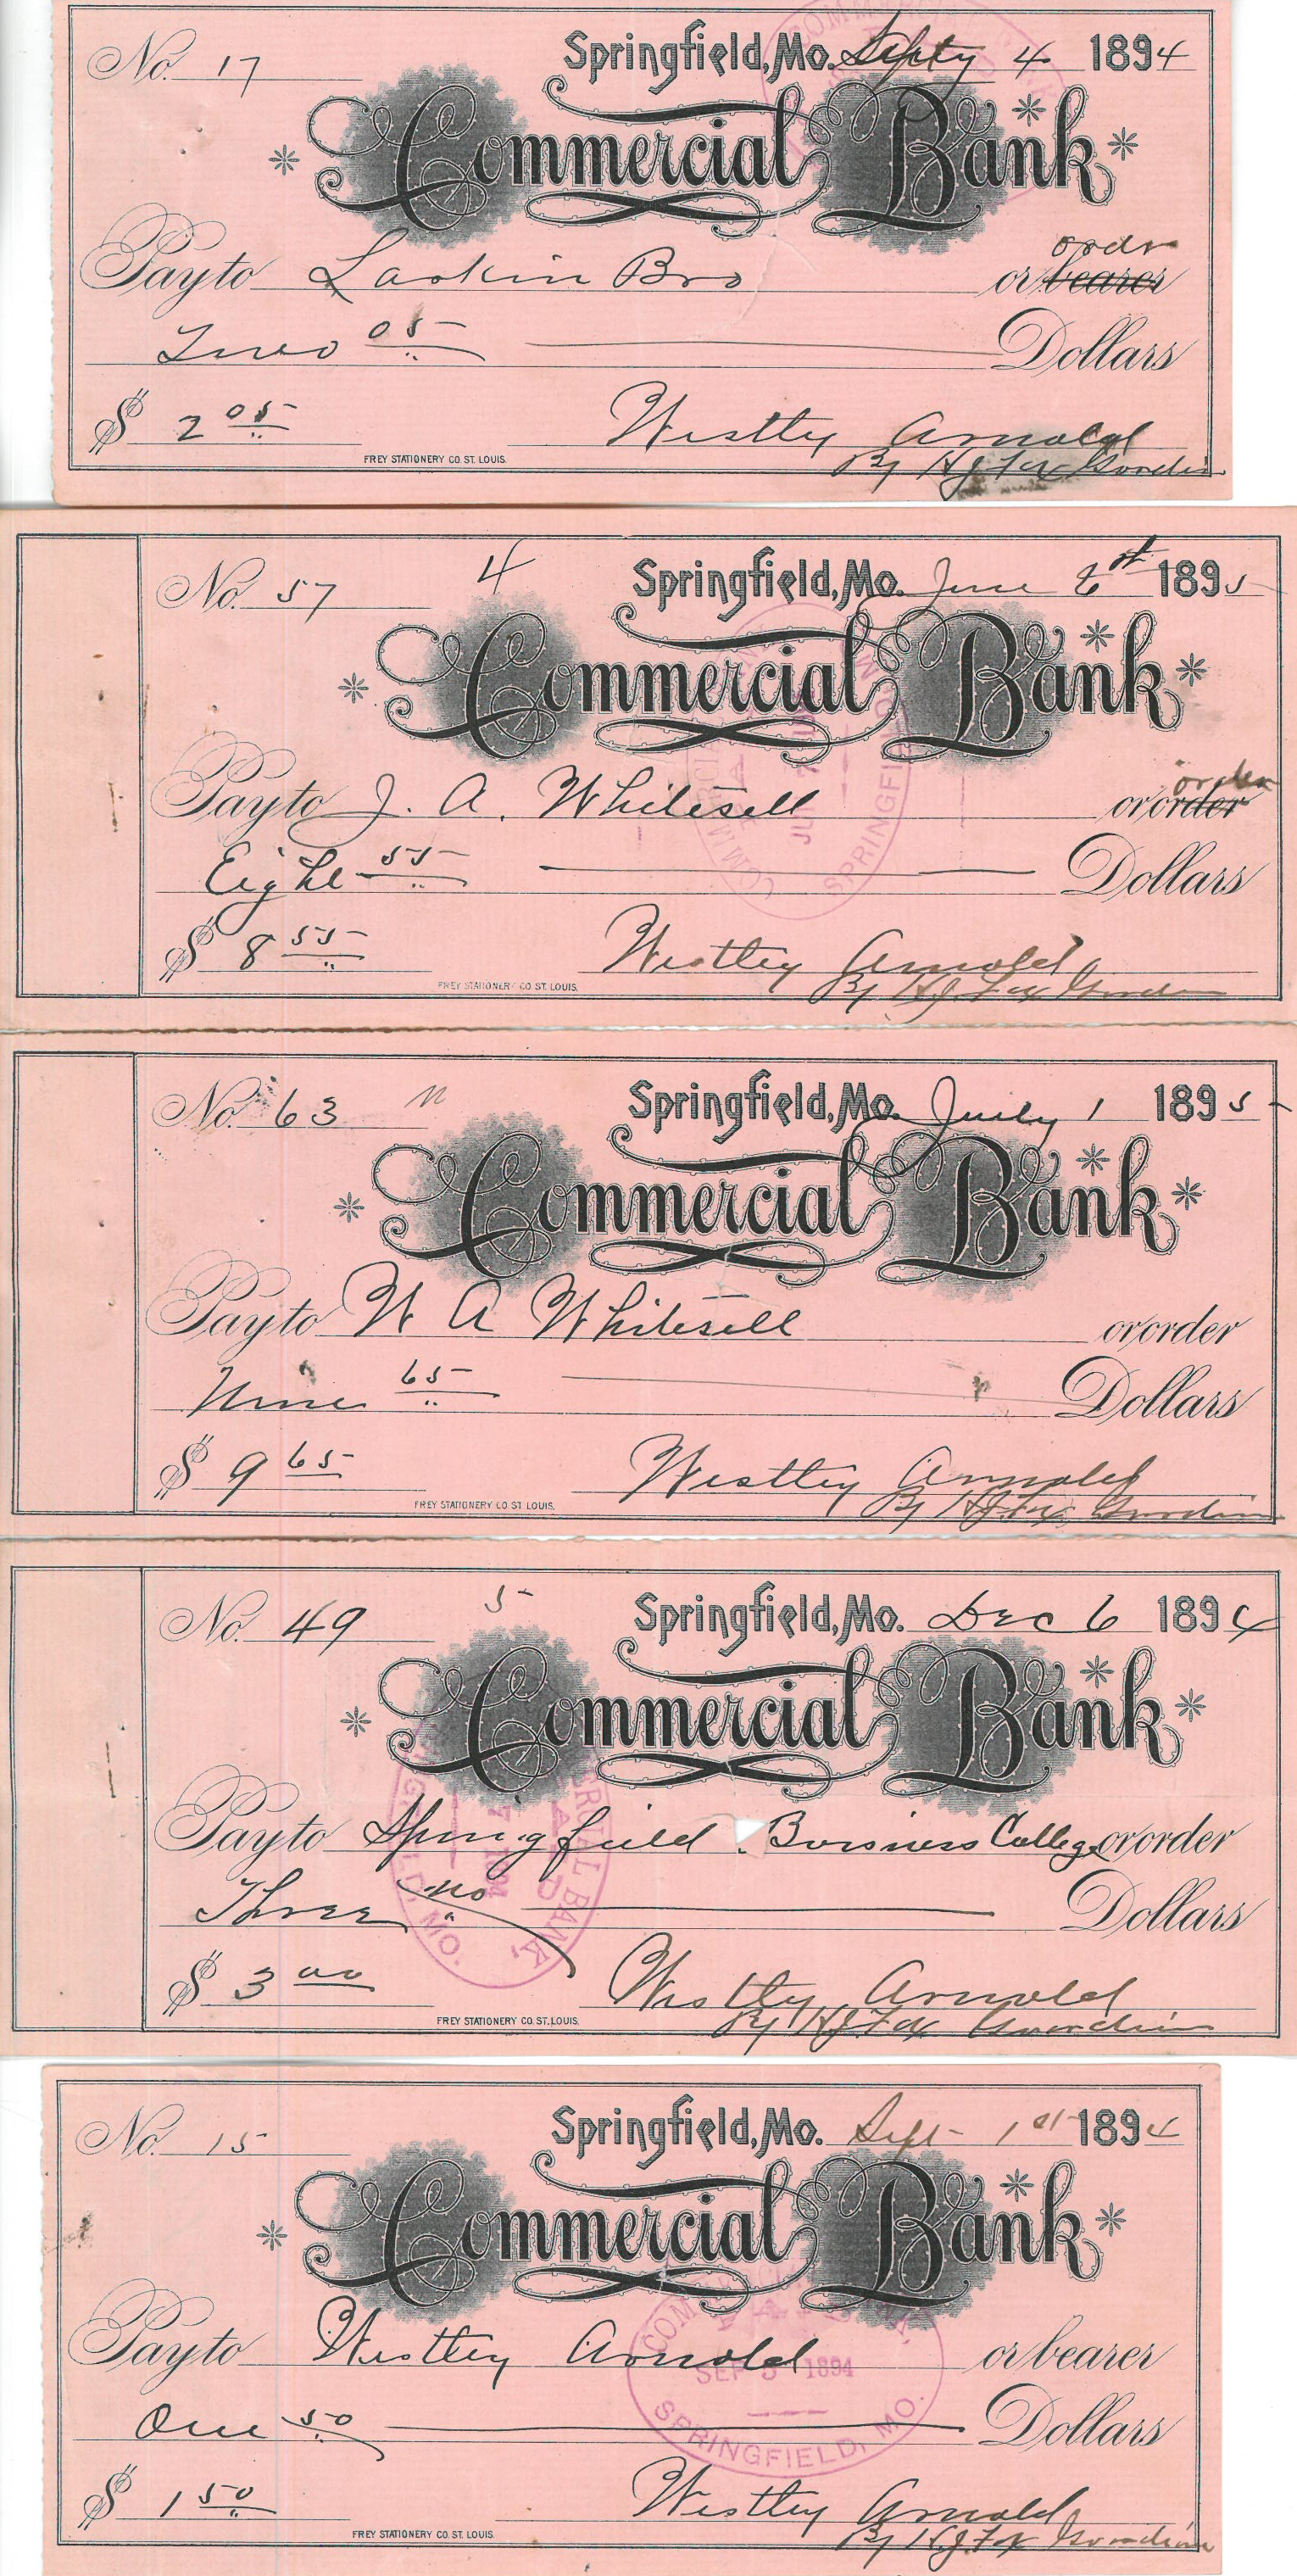 No. 17 Springfield, Mo. Septy 4 1894
Commercial Bank
order
Pay to Larkin Bro or bearer
Two 05 Dollars
$ 2 05 Westley Arnold
FREY STATIONERY CO. ST. LOUIS. By H J Fox Guardian
4
No. 57 Springfield, Mo. June 6st 1895
Commercial Bank
order
Pay to J. A. Whitesell or order
Eight 55 Dollars
$ 8 55 Westley Arnold
FREY STATIONERY CO ST. LOUIS. By H.J. Fox Guardian
No. 63 n Springfield, Mo. July 1 1895
Commercial Bank
Pay to W A Whitesell or order
Nine 65 Dollars
$ 9 65 Westley Arnold
FREY STATIONERY CO ST LOUIS. By H J Fox Guardian
No. 49 5 Springfield, Mo. Dec 6 1894
Commercial Bank
Pay to Springfield Business College or order
Three no Dollars
$ 3 00 Westley Arnold
FREY STATIONERY CO. ST. LOUIS. By H J Fox Guardian
No. 15 Springfield, Mo. Sept 1st 1894
Commercial Bank
COMMERCIAL BANK,
Pay to Westley Arnold or bearer
SEP 5 1894
One 50 Dollars
SPRINGFIELD, MO.
$ 1 50 Westley Arnold
FREY STATIONERY CO. ST. LOUIS. By H.J. Fox Guardian